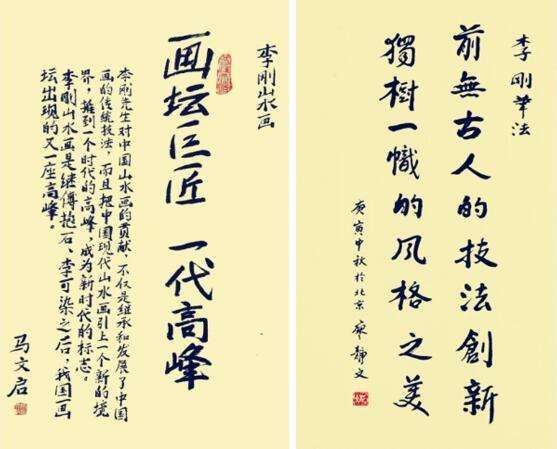 李刚山水画
画坛巨匠 一代高峰
李刚先生对中国山水画的贡献，不仅是继承和发展了中国
画的传统技法，而且把中国现代山水画引上一个新的境
界，到一个时代的高峰，成为新时代的标志。
李刚山水画是继傅抱石、李可染之后，我国画
坛出现的又一座高峰。
马文启
李刚筆法
前無古人的技法創新
獨樹一幟的风格之美
庚寅中秋於北京 廖静文